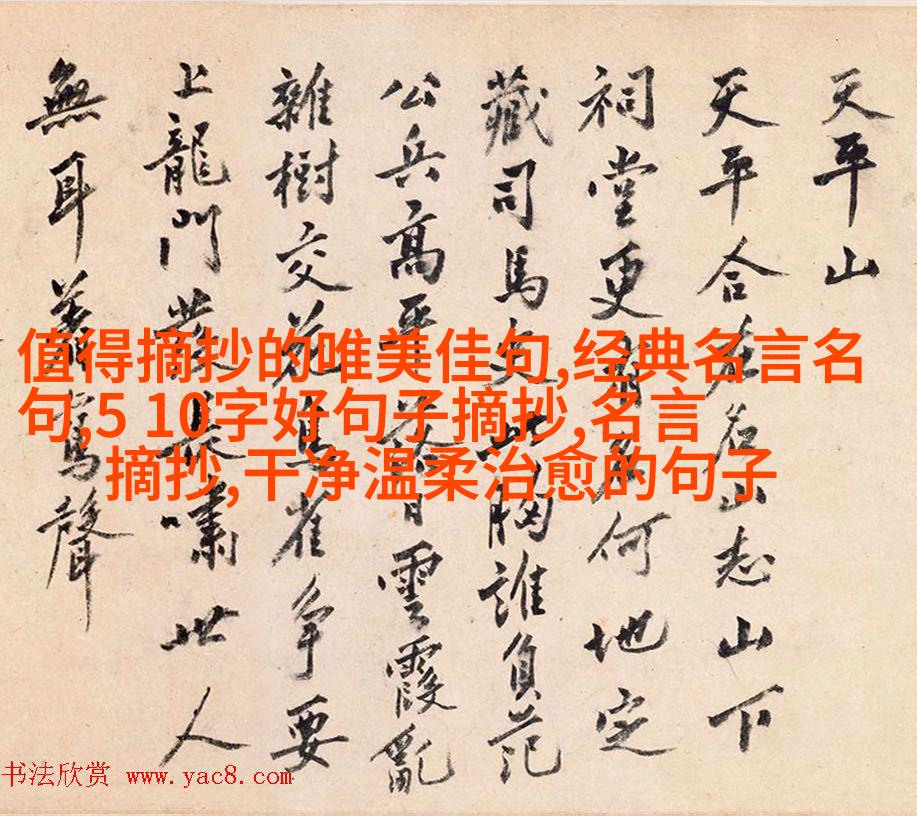 天平山
天平合在名山志山下
祠堂更何地定
藏司馬史此胸誰負范
公兵高平日雲霞亂
雜樹交花鳥雀爭要
上龍門發長嘯世人
無耳鸞聲
值得摘抄的唯美佳句,经典名言名
句,5 10字好句子摘抄,名言
摘抄,干净温柔治愈的句子
书法欣赏 www.yac8.com